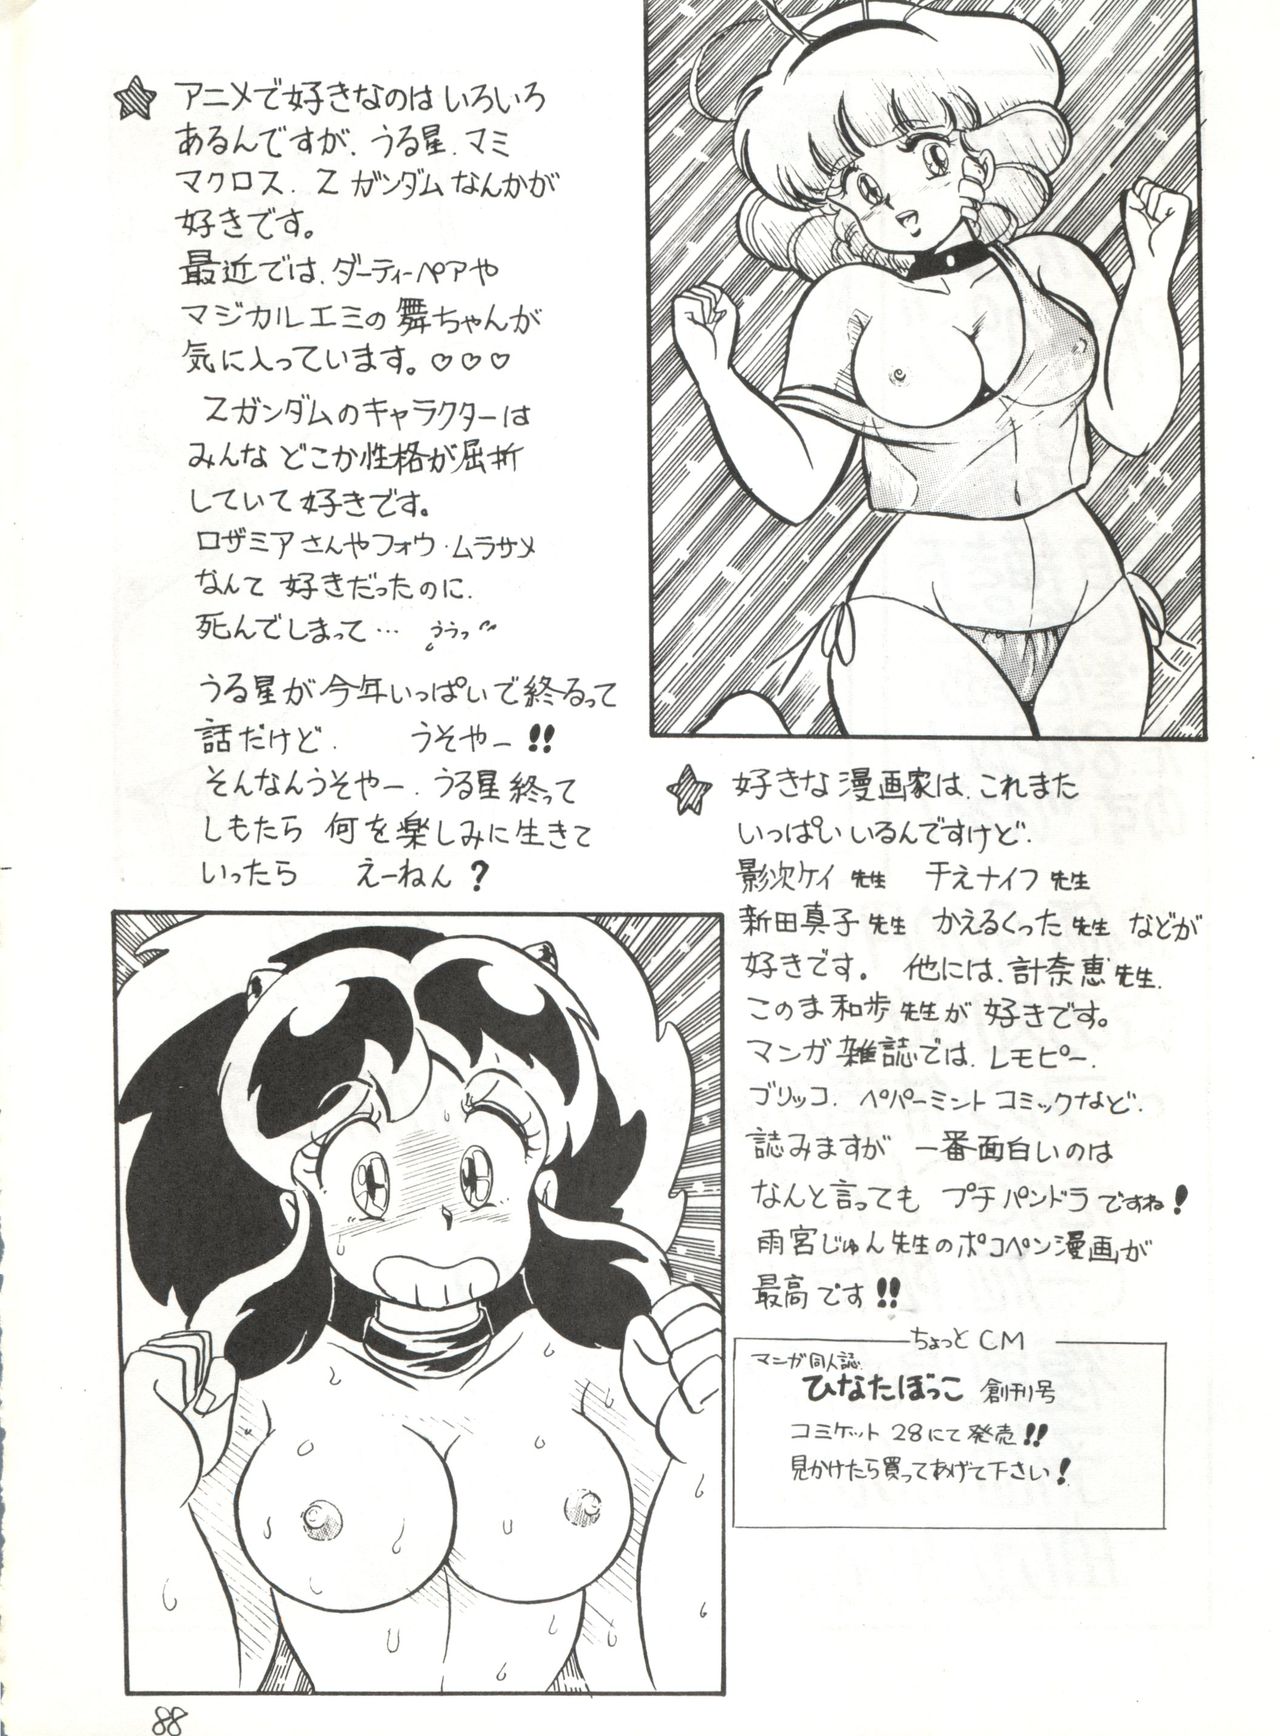 アニメで好きなのはいろいろ
あるんですが、うる星、マミ
マクロス、Zガンダムなんかが
好きです。
最近では、ダーティーペアや
マジカルエミの舞ちゃんが
気に入っています。♡♡♡
Zガンダムのキャラクターは
みんなどこか性格が屈折
していて好きです。
ロザミアさんやフォウ・ムラサメ
なんて好きだったのに、
死んでしまって… ううっ
うる星が今年いっぱいで終るって
話だけど、 うそやー!!
そんなんうそやー、うる星終って
しもたら 何を楽しみに生きて
いったら えーねん?
好きな漫画家は、これまた
いっぱいいるんですけど、
影次ケイ先生 千えナイフ先生
新田真子先生 かえるくった先生などが
好きです。他には、計奈恵先生、
このま和歩先生が好きです。
マンガ雑誌では、レモピー、
ブリッコ、ペパーミントコミックなど、
読みますが 一番面白いのは
なんと言っても プチパンドラですね!
雨宮じゅん先生のポコペン漫画が
最高です!!
ちょっとCM
マンガ同人誌
ひなたぼっこ 創刊号
コミケット28にて発売!!
見かけたら買ってあげて下さい!
88